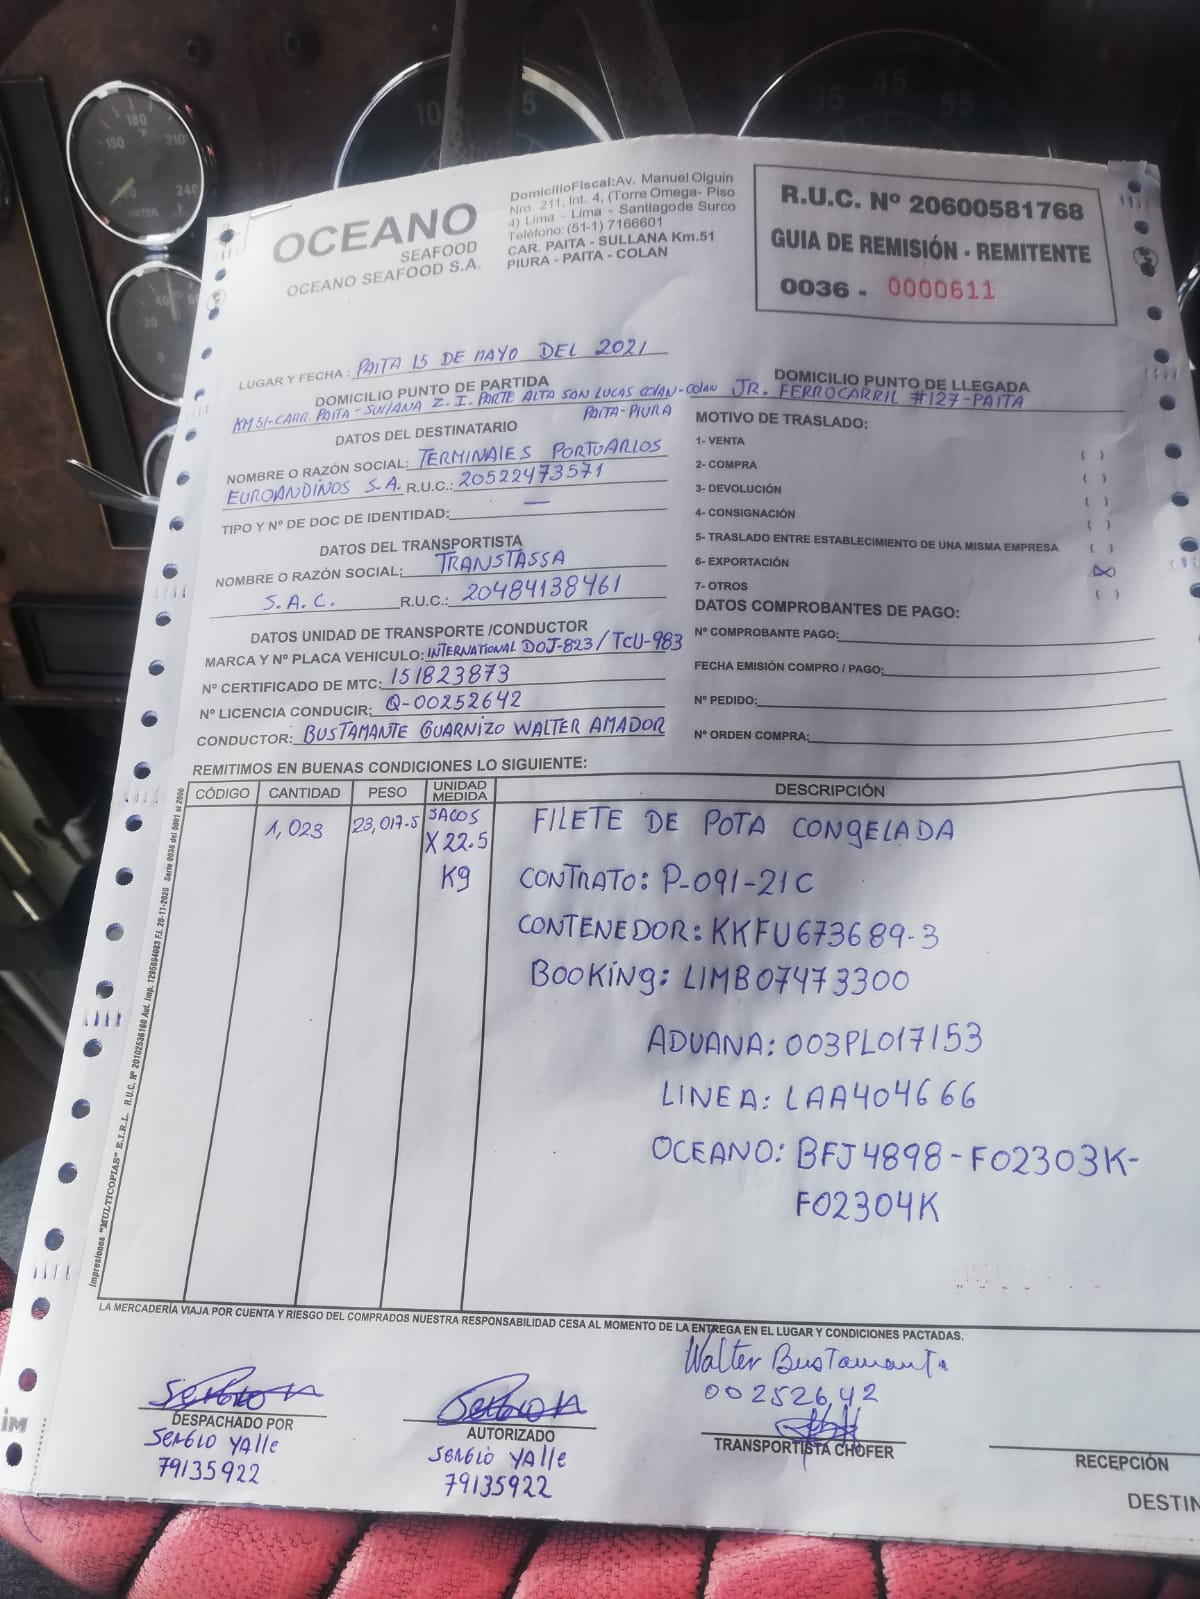 OCEANO
SEAFOOD
OCEANO SEAFOOD S.A.
DomicilioFiscal:Av. Manuel Olguin
Nro. 211, Int. 4, (Torre Omega- Piso
4) Lima - Lima - Santiagode Surco
Teléfono: (51-1) 7166601
CAR. PAITA - SULLANA Km.51
PIURA - PAITA - COLAN
R.U.C. Nº 20600581768
GUIA DE REMISIÓN - REMITENTE
0036 - 0000611
LUGAR Y FECHA : PAITA 15 DE MAYO DEL 2021
DOMICILIO PUNTO DE PARTIDA
KM 51-CARR. PAITA-SULLANA Z.I. PARTE ALTA SAN LUCAS COLAN-COLAN
PAITA-PIURA
DOMICILIO PUNTO DE LLEGADA
JR. FERROCARRIL #127-PAITA
DATOS DEL DESTINATARIO
NOMBRE O RAZÓN SOCIAL: TERMINALES PORTUARIOS
EUROANDINOS S.A. R.U.C.: 20522473571
TIPO Y Nº DE DOC DE IDENTIDAD: —
DATOS DEL TRANSPORTISTA
NOMBRE O RAZÓN SOCIAL: TRANSTASSA
S.A.C. R.U.C.: 20484138461
DATOS UNIDAD DE TRANSPORTE /CONDUCTOR
MARCA Y Nº PLACA VEHICULO: INTERNATIONAL DOJ-823 / TCU-983
Nº CERTIFICADO DE MTC: 151823873
Nº LICENCIA CONDUCIR: Q-00252642
CONDUCTOR: BUSTAMANTE GUARNIZO WALTER AMADOR
MOTIVO DE TRASLADO:
1- VENTA ( )
2- COMPRA ( )
3- DEVOLUCIÓN ( )
4- CONSIGNACIÓN ( )
5- TRASLADO ENTRE ESTABLECIMIENTO DE UNA MISMA EMPRESA ( )
6- EXPORTACIÓN (X)
7- OTROS ( )
DATOS COMPROBANTES DE PAGO:
Nº COMPROBANTE PAGO:
FECHA EMISIÓN COMPRO / PAGO:
Nº PEDIDO:
Nº ORDEN COMPRA:
REMITIMOS EN BUENAS CONDICIONES LO SIGUIENTE:
CÓDIGO CANTIDAD PESO UNIDAD MEDIDA DESCRIPCIÓN
1,023 23,017.5 SACOS FILETE DE POTA CONGELADA
X 22.5
Kg CONTRATO: P-091-21C
CONTENEDOR: KKFU673689-3
BOOKING: LIMB07473300
ADUANA: 003PL017153
LINEA: LAA404666
OCEANO: BFJ4898-F02303K-
F02304K
Impresiones "MULTICOPIAS" E.I.R.L. R.U.C. Nº 20102536160 Aut. Imp. 1295694063 F.I. 20-11-2020 Serie 0036 del 0001 al 2000
LA MERCADERÍA VIAJA POR CUENTA Y RIESGO DEL COMPRADOS NUESTRA RESPONSABILIDAD CESA AL MOMENTO DE LA ENTREGA EN EL LUGAR Y CONDICIONES PACTADAS.
DESPACHADO POR
SERGIO YAlle
79135922
AUTORIZADO
SERGIO YAlle
79135922
Walter Bustamante
00252642
TRANSPORTISTA CHOFER
RECEPCIÓN
DESTIN
IM